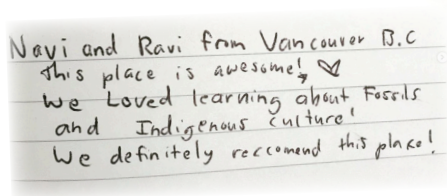 Navi and Ravi from Vancouver B.C
This place is awesome! ♡
We Loved learning about Fossils
and Indigenous culture!
We definitely reccomend this place!